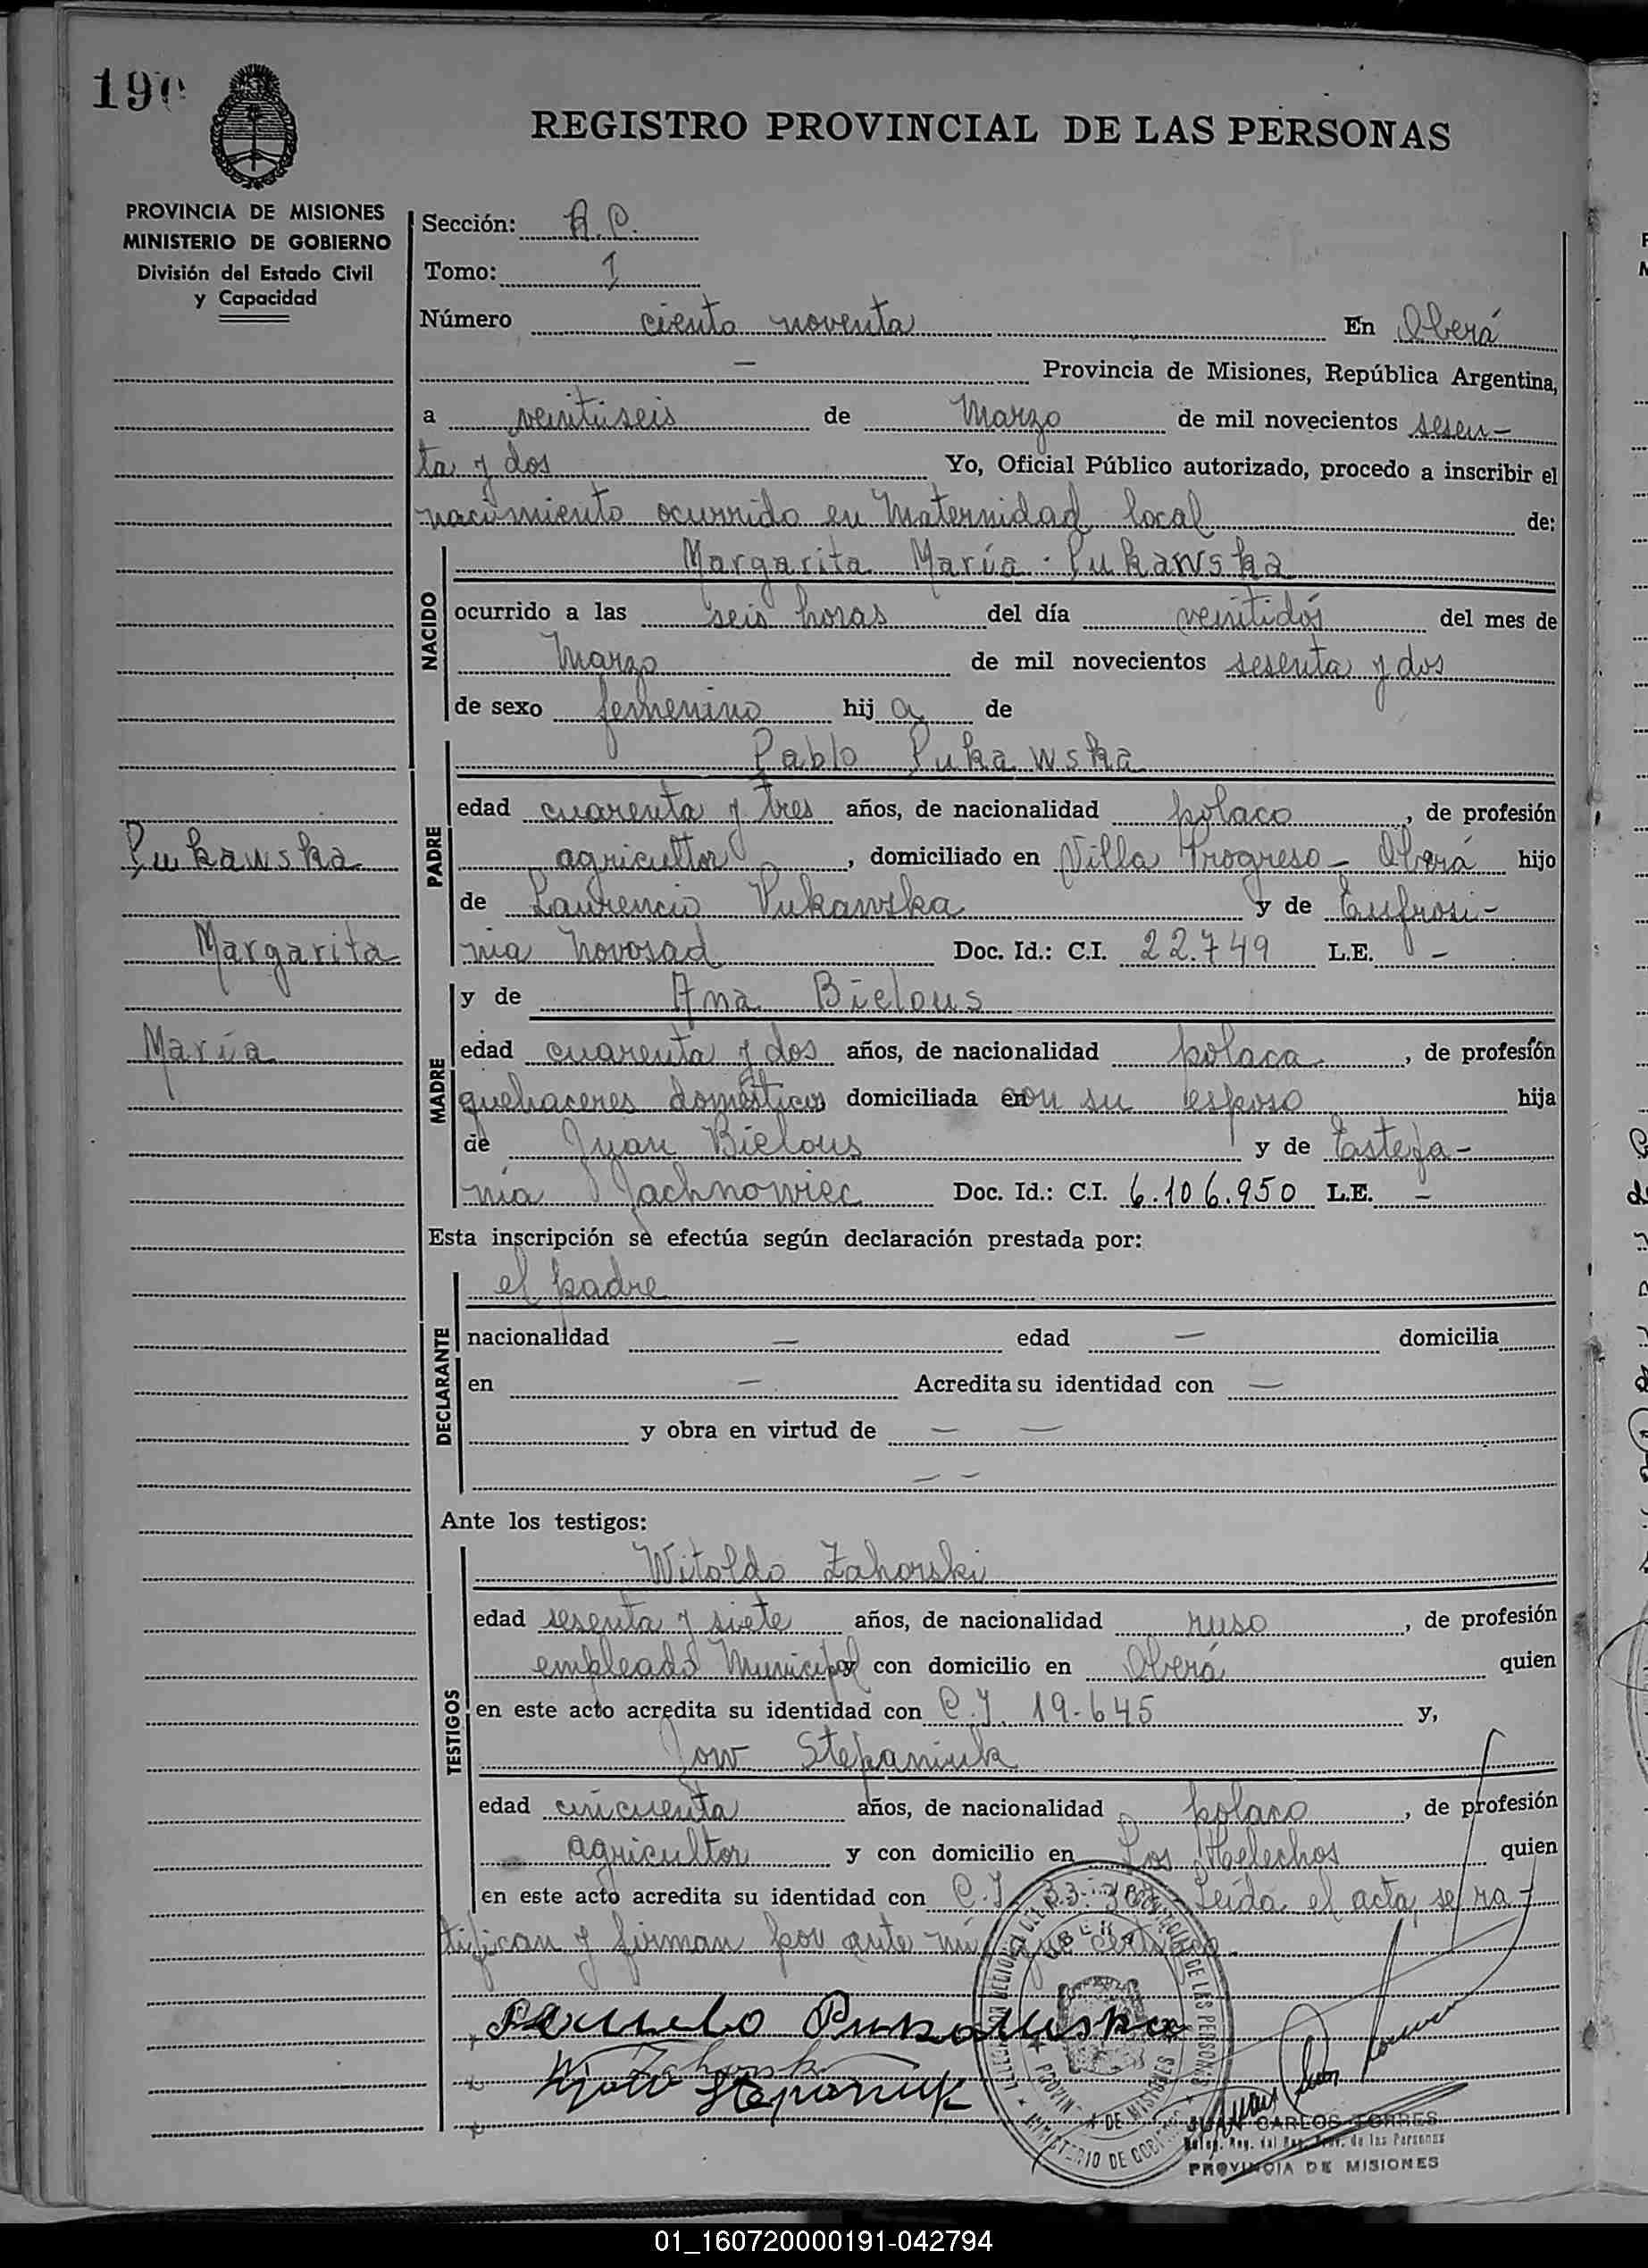 190
REGISTRO PROVINCIAL DE LAS PERSONAS
PROVINCIA DE MISIONES
MINISTERIO DE GOBIERNO
División del Estado Civil
y Capacidad
Sección: R.C.
Tomo: 1
Número ciento noventa En Oberá
— Provincia de Misiones, República Argentina,
a veintiseis de Marzo de mil novecientos sesen-
ta y dos Yo, Oficial Público autorizado, procedo a inscribir el
nacimiento ocurrido en Maternidad local de:
NACIDO
Margarita María Pukawska
ocurrido a las seis horas del día veintidós del mes de
Marzo de mil novecientos sesenta y dos
de sexo femenino hij a de
PADRE
Pablo Pukawska
edad cuarenta y tres años, de nacionalidad polaco, de profesión
agricultor, domiciliado en Villa Progreso - Oberá hijo
de Laurencio Pukawska y de Eufrosi-
nia Novosad Doc. Id.: C.I. 22.749 L.E. -
Pukawska
Margarita
María
MADRE
y de Ana Bielous
edad cuarenta y dos años, de nacionalidad polaca, de profesión
quehaceres domésticos domiciliada con su esposo hija
de Juan Bielous y de Estefa-
nia Jachnowiec Doc. Id.: C.I. 6.106.950 L.E. -
Esta inscripción se efectúa según declaración prestada por:
DECLARANTE
el padre
nacionalidad — edad — domicilia
en — Acredita su identidad con —
y obra en virtud de — —
— —
Ante los testigos:
TESTIGOS
Witoldo Zahorski
edad sesenta y siete años, de nacionalidad ruso, de profesión
empleado Municipal y con domicilio en Oberá quien
en este acto acredita su identidad con C.I. 19.645 y,
Jow Stepaniuk
edad cincuenta años, de nacionalidad polaco, de profesión
agricultor y con domicilio en Los Helechos quien
en este acto acredita su identidad con C.I. Leída el acta, se ra-
tifican y firman por ante mí que certifico.
Pukawska
Zahorski
Stepaniuk
OBERA
PROVINCIA DE MISIONES
MINISTERIO DE GOBIERNO
JUAN CARLOS TORRES
Deleg. Reg. del Reg. Prov. de las Personas
PROVINCIA DE MISIONES
01_160720000191-042794